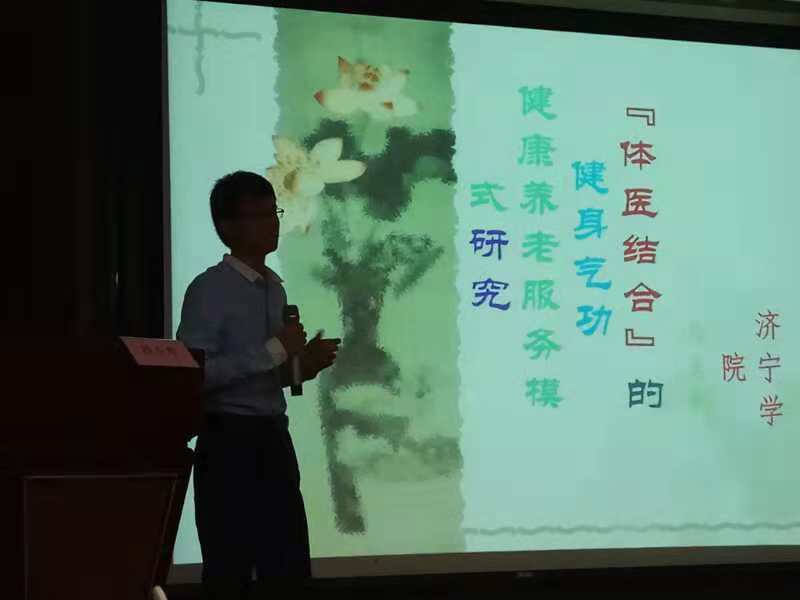 『体医结合』的
健身气功
健康养老服务模
式研究
济宁学
院